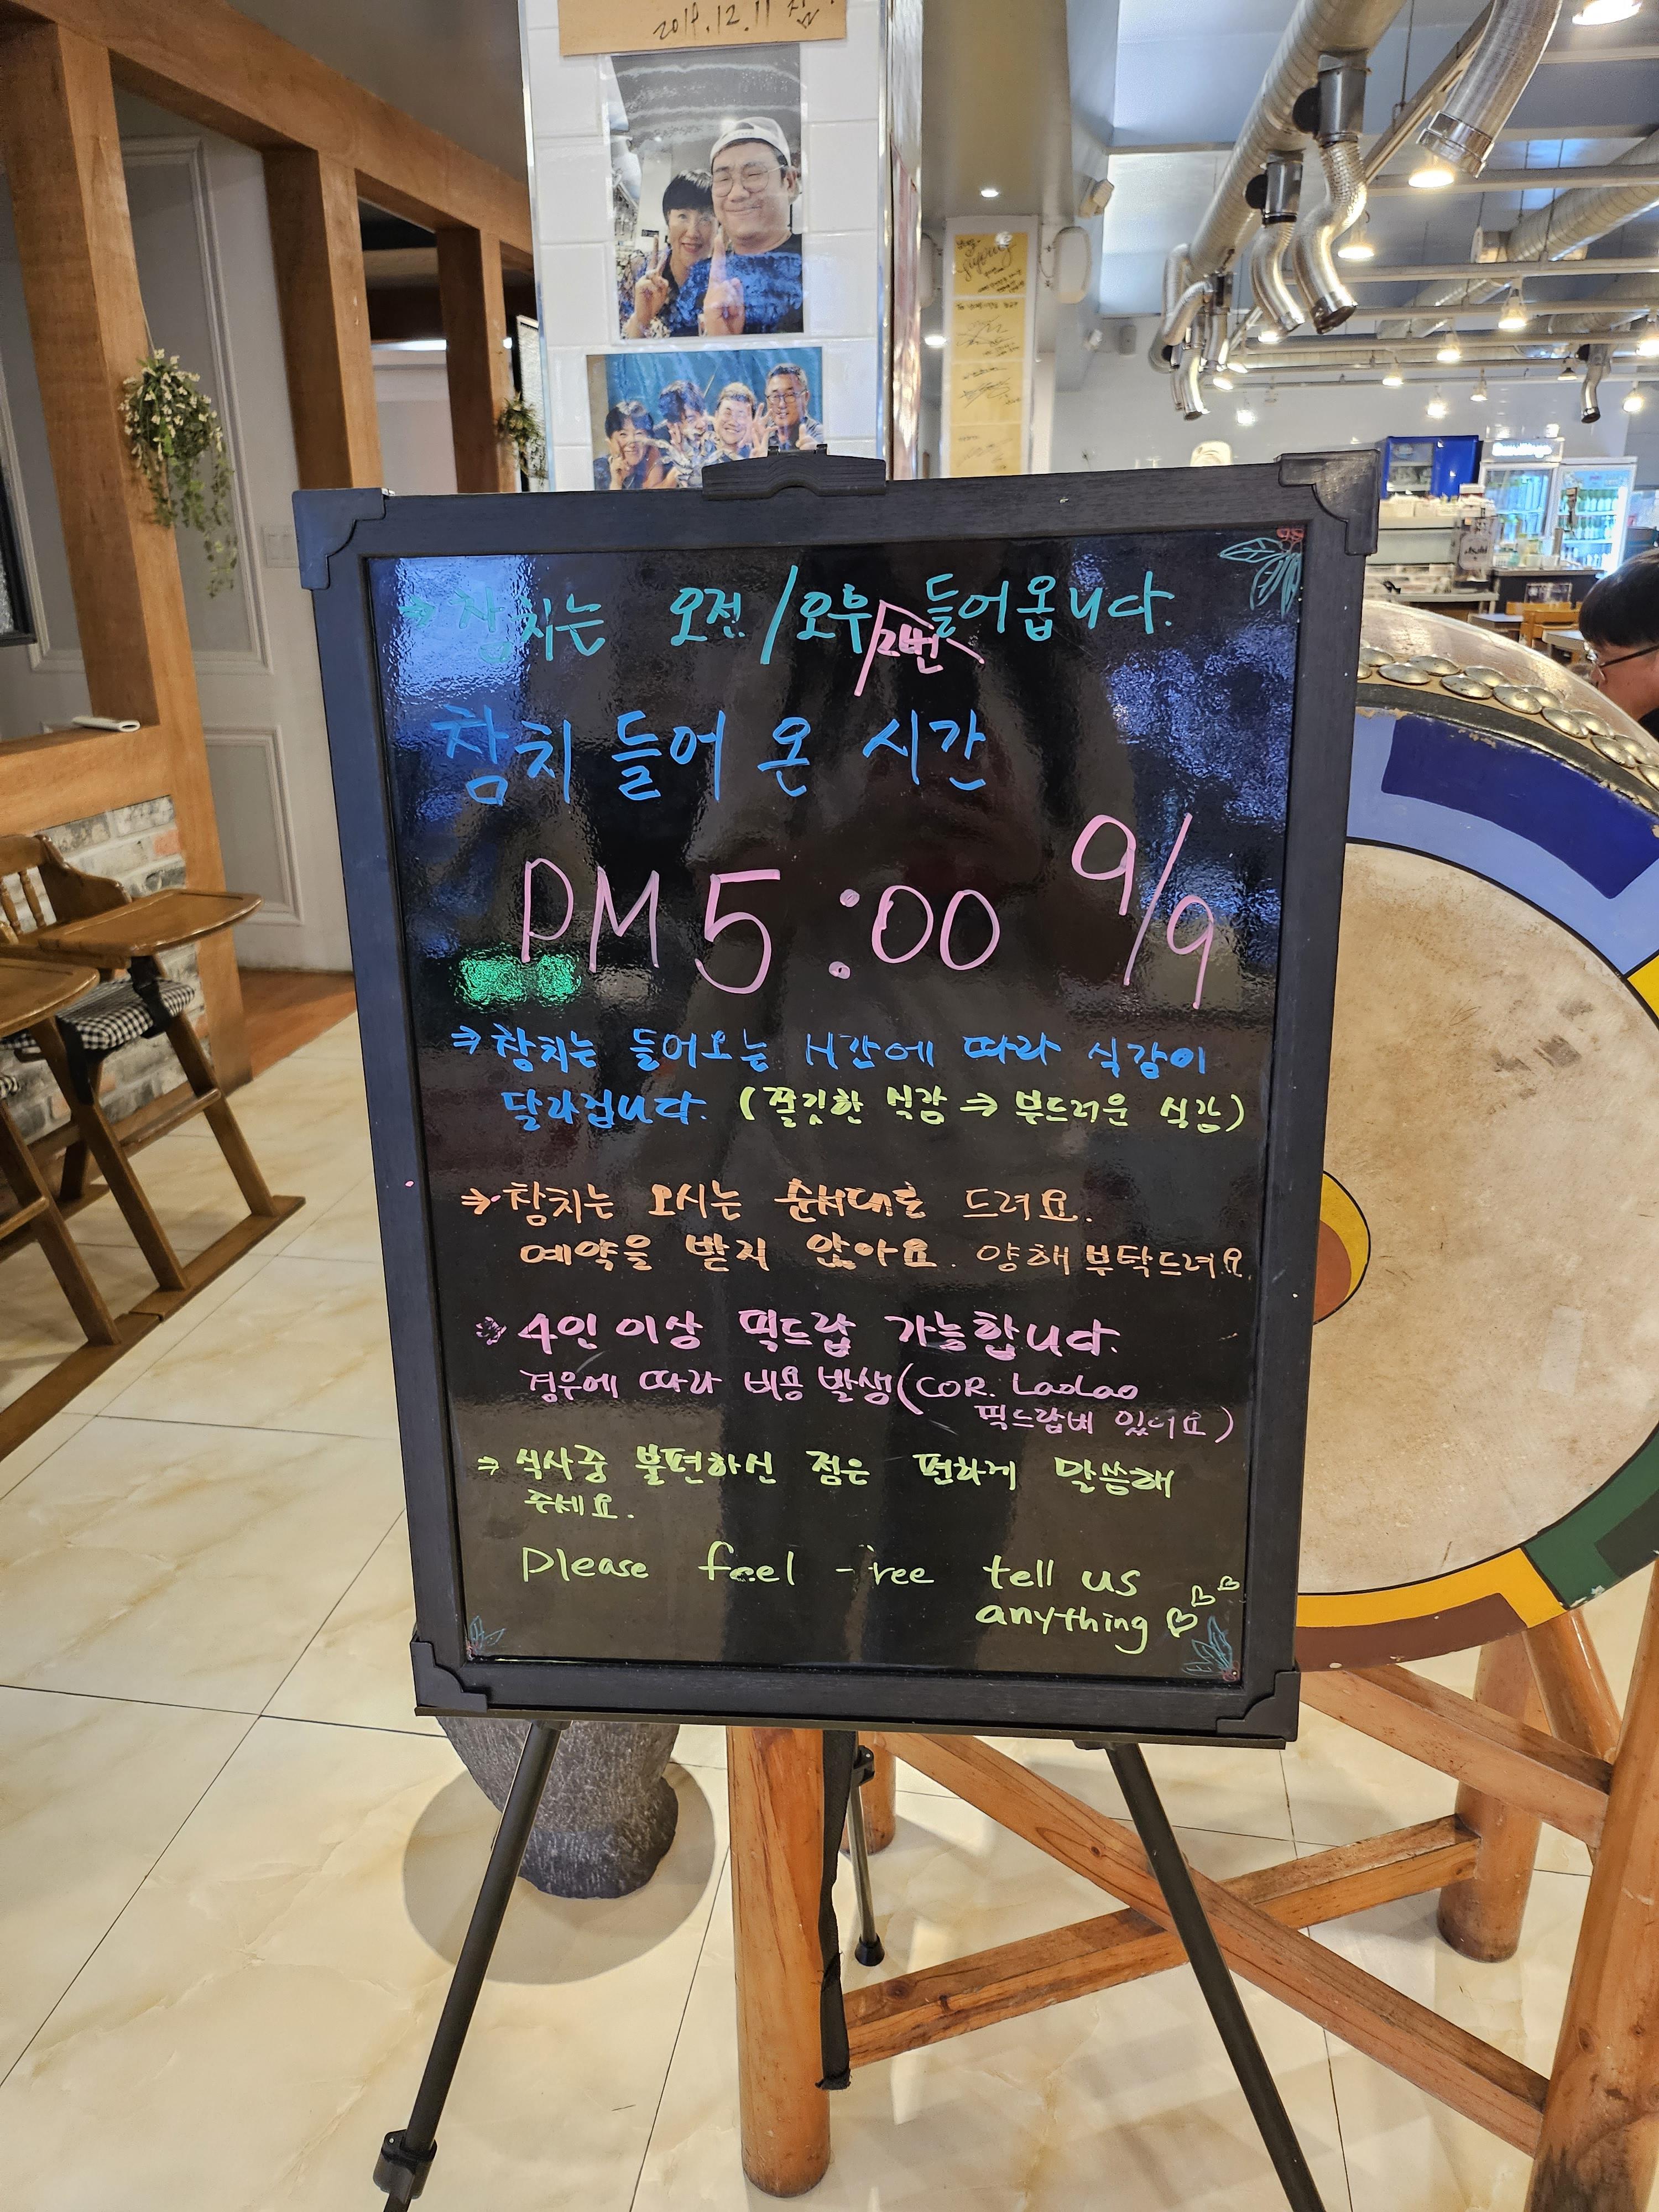 2019.12.11
→ 참치는 오전/오후 2번 들어옵니다.
참치 들어 온 시간
PM 5:00 9/9
→ 참치는 들어오는 시간에 따라 식감이
달라집니다. (쫄깃한 식감 → 부드러운 식감)
→ 참치는 오시는 순서대로 드려요.
예약을 받지 않아요. 양해 부탁드려요.
4인 이상 픽드랍 가능합니다.
경우에 따라 비용 발생 (COR. LaoLao
픽드랍비 있어요)
→ 식사중 불편하신 점은 편하게 말씀해
주세요.
Please feel free tell us
anything